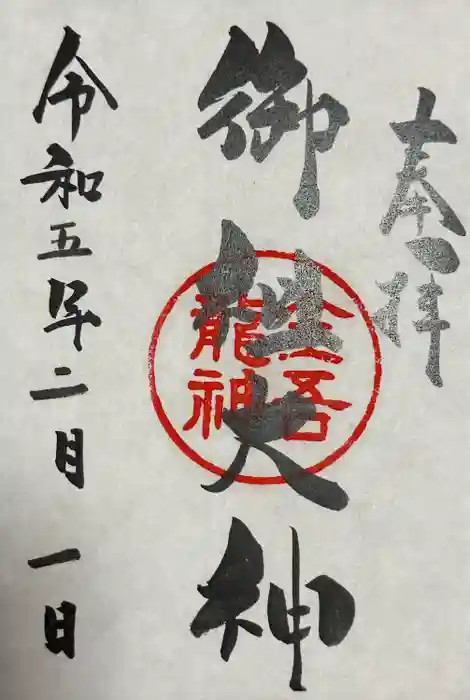 奉拝
御大神
金吾
龍神
令和五年二月一日